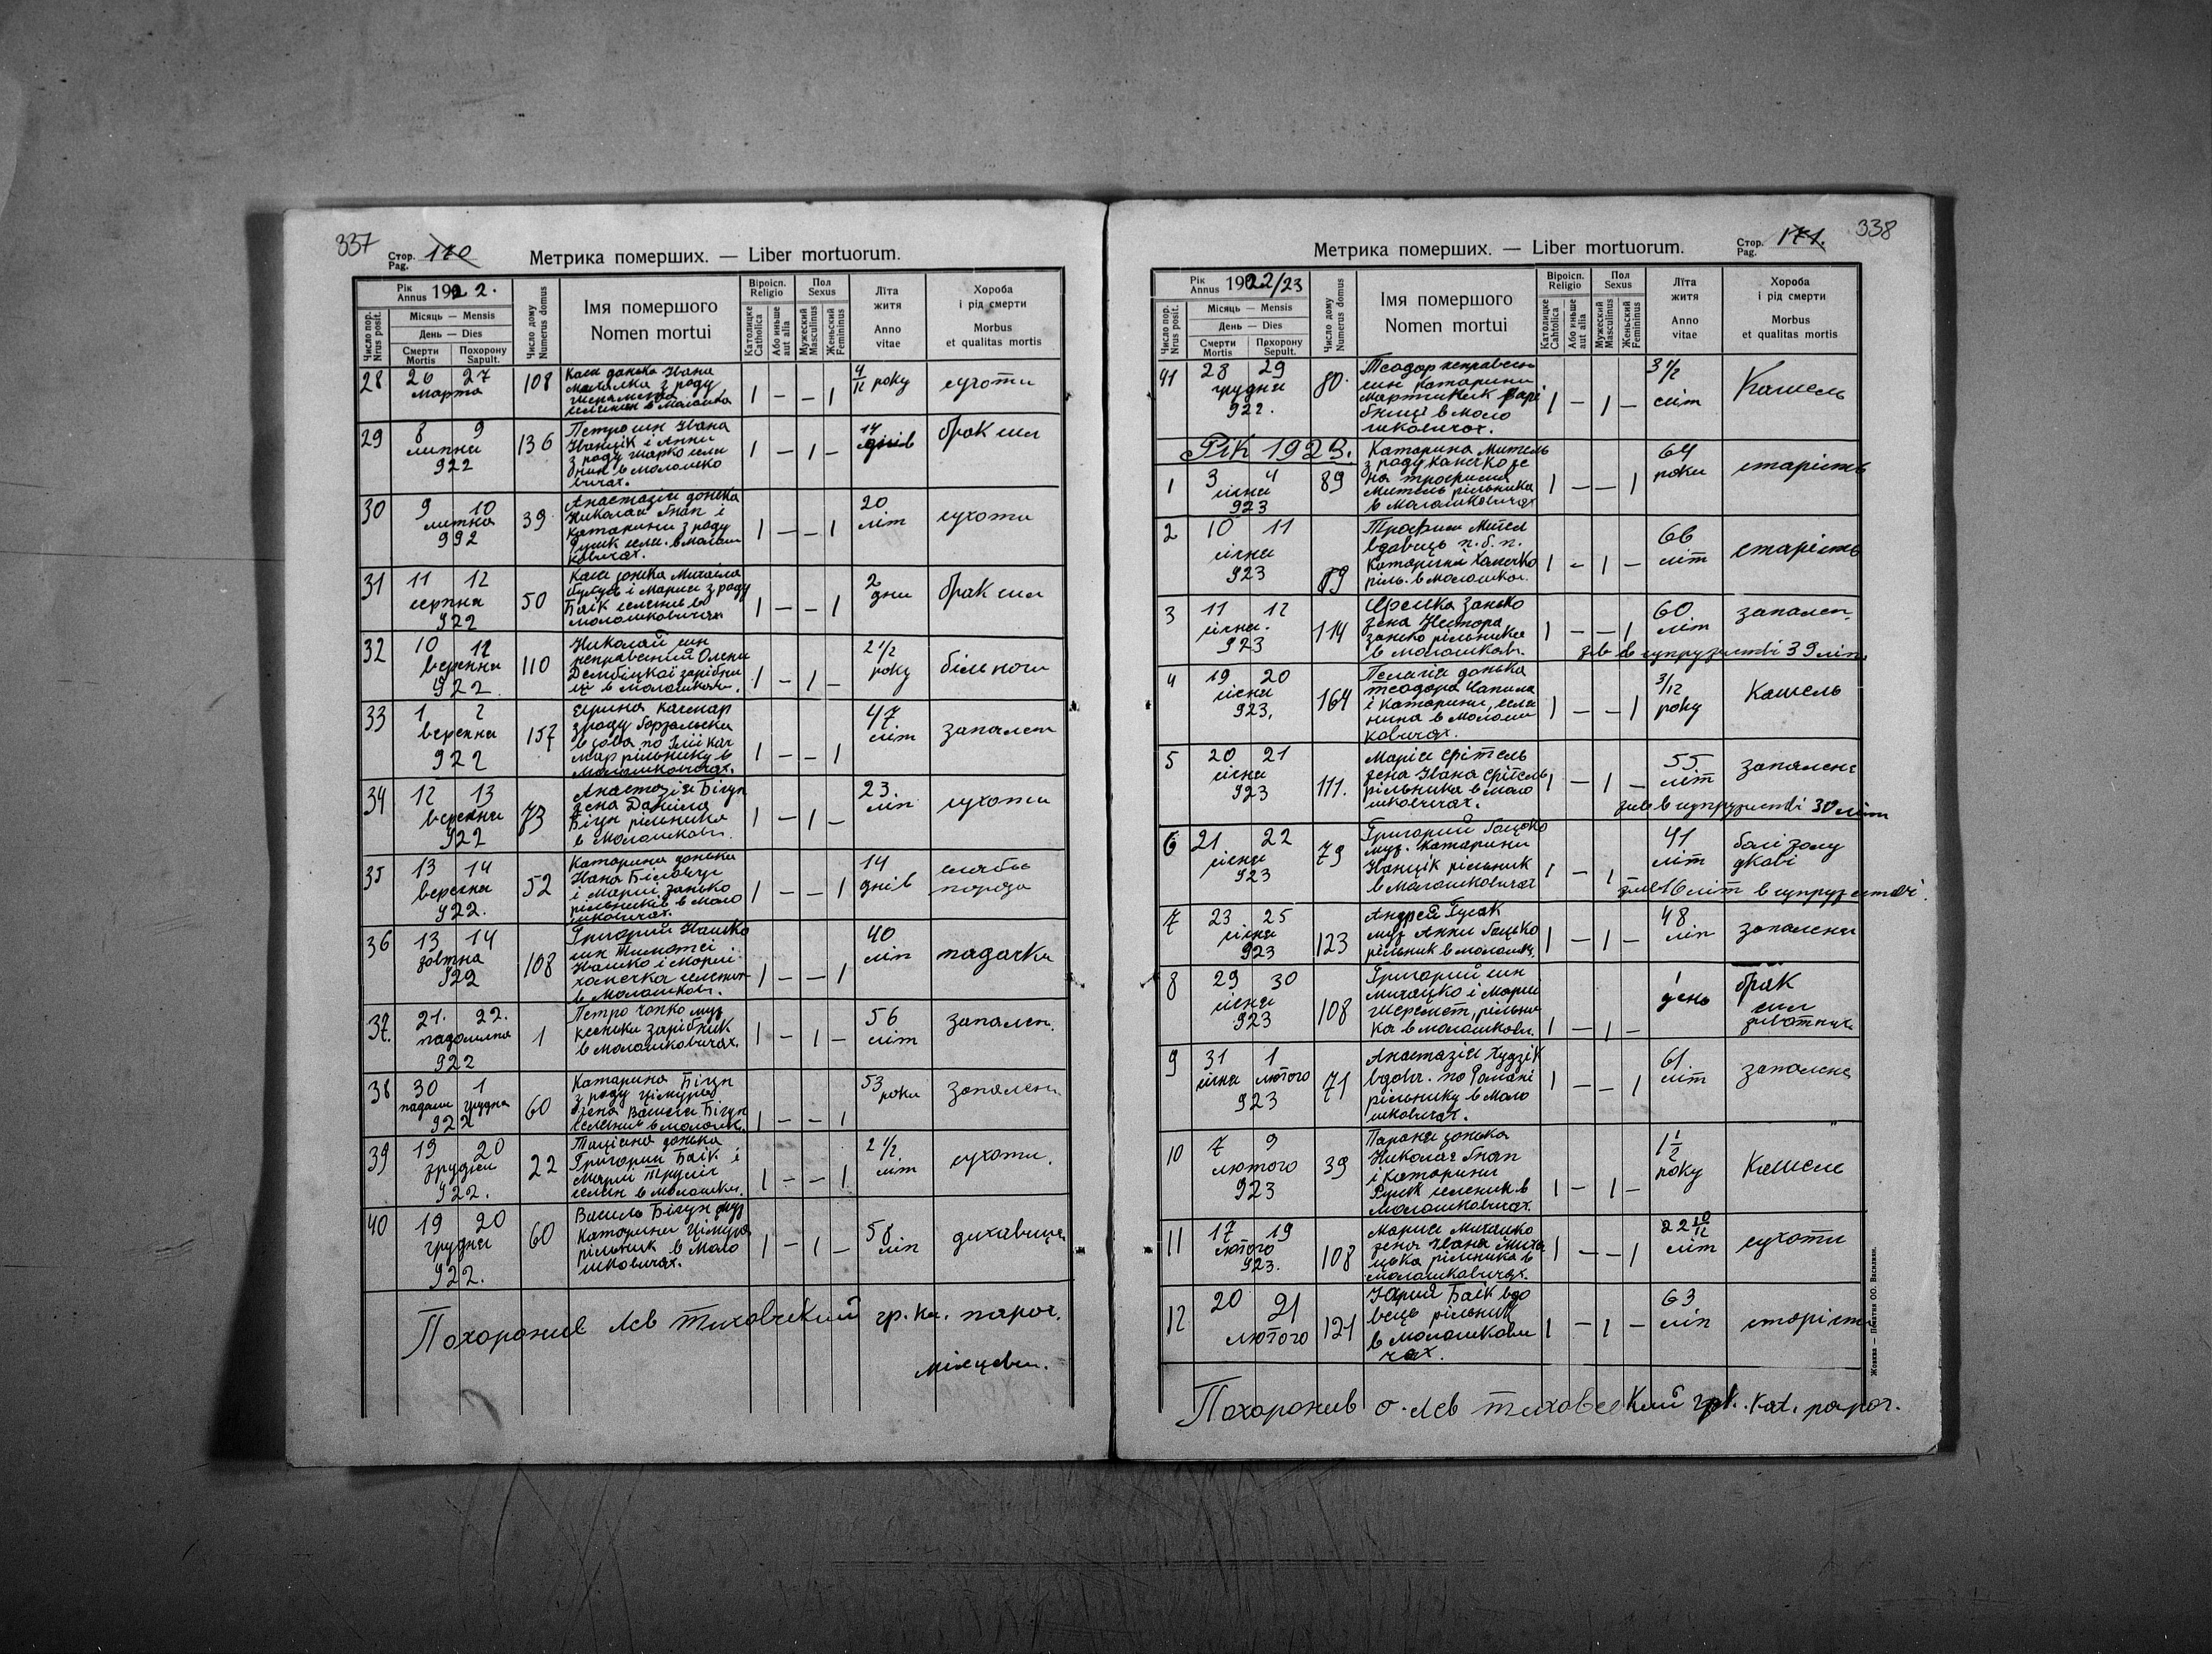 337
Стор. Pag. 170
Метрика померших. — Liber mortuorum.
Рік Annus 1922.
Місяць — Mensis
День — Dies
Число пор. Nrus posit.
Смерти Mortis
Похорону Sapult.
Число дому Numerus domus
Імя помершого
Nomen mortui
Віроісп. Religio
Католицке Catholica
Або иньше aut alia
Пол Sexus
Мужеский Masculinus
Женьский Femininus
Літа житя
Anno vitae
Хороба і рід смерти
Morbus et qualitas mortis
28 26 27 марта 108
Кася донька Ивана
з роду
1 — — 1
року
сухоти
29 8 9 липня 922 136
Петро син Ивана
Иванцік і Анни
з роду
в Молошко
вичах.
1 — 1 —
14 днів
брак сил
30 9 10 липня 992 39
Анастазія донька
Николая Гнап і
Катарини з роду
ковичах.
1 — — 1
20 літ
сухоти
31 11 12 серпня 922 50
Кася донька Михаила
і Марии з роду
Баік
Молошковичах
1 — — 1
2 дни
брак сил
32 10 11 вересня 922 110
Николай син
неправесний Олени
Дембіцкої зарібни
ці в Молошкови.
1 — 1 —
2 1/2 року
біль ноги
33 1 2 вересня 922 157
Качмар
з роду
вдова по Ілії Кач
мар рільнику в
Молошковичах.
1 — — 1
47. літ
запален
34 12 13 вересня 922 73
Анастазія Бігун
жена Данила
Бігун рільника
в Молошкови.
1 — 1 —
23. літ
сухоти
35 13 14 вересня 922. 52
Катарина донька
Ивана
і Марії Занько
рільників в Моло
шковичах.
1 — — 1
14 днів
слабе
порода
36 13 14 жовтня 922 108
Григорий Ивашко
син Тимотеі
Ивашко і Марії
в Молошкови.
1 — — 1
40 літ
падачка
37. 21. 22. падолиста 922 1
Петро Чопко муж
зарібник
в Молошковичах.
1 — 1 —
56 літ
запален.
38 30 1 падоли грудня 922 60
Катарина Бігун
з роду
жена Василя Бігун
1 — — 1
53 роки
запален
39 19 20 грудня 922. 22
Таціяна донька
Григория Баік і
Марії
в Молошки.
1 — — 1
2 1/2. літ
сухоти.
40 19 20 грудня 922. 60
Василь Бігун муж
Катарини
рільник в Моло
шковичах.
1 — 1 —
58 літ
дихавиця
Похоронив Лев Тиховский гр. ка. парох.
місцеви.
338
Стор. Pag. 171.
Метрика померших. — Liber mortuorum.
Рік Annus 1922/23
Місяць — Mensis
День — Dies
Число пор. Nrus posit.
Смерти Mortis
Похорону Sepult.
Число дому Numerus domus
Імя помершого
Nomen mortui
Віроісп. Religio
Католицке Cahtolica
Або иньше aut alia
Пол Sexus
Мужеский Masculinus
Женьский Femininus
Літа житя
Anno vitae
Хороба і рід смерти
Morbus et qualitas mortis
41 28 29 грудня 922. 80.
Теодор неправесн
син Катарини
Мартиник зарі
бниці в Моло
шковичах.
1 — 1 —
3 1/2 літ
Кашель
Рік 1923.
1 3 4 січня 923 89
Катарина Мител
з роду Канечко же
на Трофима
Мител рільника
в Молошковичах
1 — — 1
64 роки
старість
2 10 11 січня 923 89
Трофим Мител
вдовець п. б. п.
Катарині Канечко
ріль. в Молошков.
1 — 1 —
66 літ
старість
3 11 12 січня. 923 114
Занько
жена Нестора
Занько рільника
в Молошкови.
1 — — 1
60 літ
запален
жив в супружестві 39 літ.
4 19 20 січня 923, 164
Пелагія донька
Теодора
і Катарини, селя
нина в Молош
ковичах.
1 — — 1
3/12 року
Кашель
5 20 21 січня 923 111.
Марія Фітель
жена Ивана Фітель
рільника в Моло
шковичах.
1 — 1 —
55 літ
запалене
жив в супружестві 30 літ
6 21 22 січня 923 79
Григорий Гоцко
муж. Катарини
Иванцік рільник
в Молошковичах
1 — 1
41 літ
болі жолу
дкові
жив 16 літ в супружестві.
7 23 25 січня 923 123
Андрей Гусак
муж Анни Гоцко
рільник в Молошк.
1 — 1 —
48 літ
запалени
8 29 30 січня 923 108
Григорий син
Михацко і Марии
Шеремет, рільни
ка в Молошкови.
1 — 1 —
1 день
брак
сил
животних
9 31 1 січня лютого 923 71
Анастазія Худзік
вдов. по Романі
рільнику в Моло
шковичах.
1 — — 1
61 літ
запалене
10 7 9 лютого 923 39
Параня донька
Николая Гнап
і Катарини
в
Молошковичах.
1 — 1 —
1 1/2 року
Кашель
11 17 19 лютого 923. 108
Мария Михацко
жена Ивана Миха
цька рільника в
Молошковичах.
1 — — 1
22 10/12 літ
сухоти
12 20 21 лютого 121
Юрий Баік вдо
вець рільник
в Молошкови
чах.
1 — 1 —
63 літ
старість
Похоронив о. Лев Тиховский гр. кат. парох.
Жовква — Печатня ОО. Василиян.